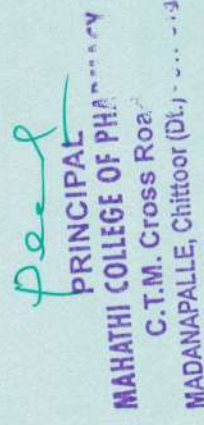 PRINCIPAL
MAHATHI COLLEGE OF
C.T.M. Cross
MADANAPALLE, Chittoor (Dt.)